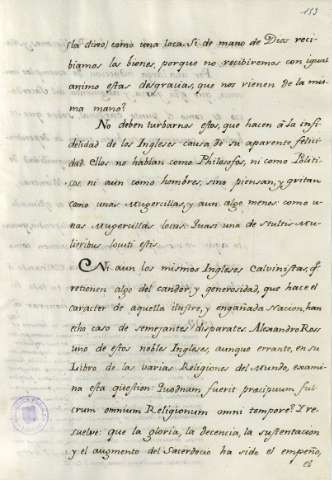 153
(la dixo) como una loca. Si de mano de Dios reci-
biamos los bienes, porque no recibiremos con igual
animo estas desgracias, que nos vienen de la mis-
ma mano?
No deben turbarnos estos, que hacen á la infi-
delidad de los Ingleses causa de su aparente felici-
dad. Ellos no hablan como Philosofos, ni como Politi-
cos, ni aun como hombres; sino piensan, y gritan
como unas Mugercillas, y aun algo menos: como u-
nas Mugercillas locas: Quasi una de stultis Mu-
lieribus locuti estis.
Ni aun los mismos Ingleses Calvinistas, q.
retienen algo del candor, y generosidad, que hace el
caracter de aquella ilustre, y engañada Nacion, han
hecho caso de semejantes disparates. Alexandro Ross
uno de estos nobles Ingleses, aunque errante, en su
Libro de las varias Religiones del Mundo, exami-
na esta question: Quodnam fuerit precipuum ful-
crum omnium Religionum omni tempore? I re-
suelve: que la gloria, la decencia, la sustentacion
y el augmento del Sacerdocio ha sido el empeño,
el